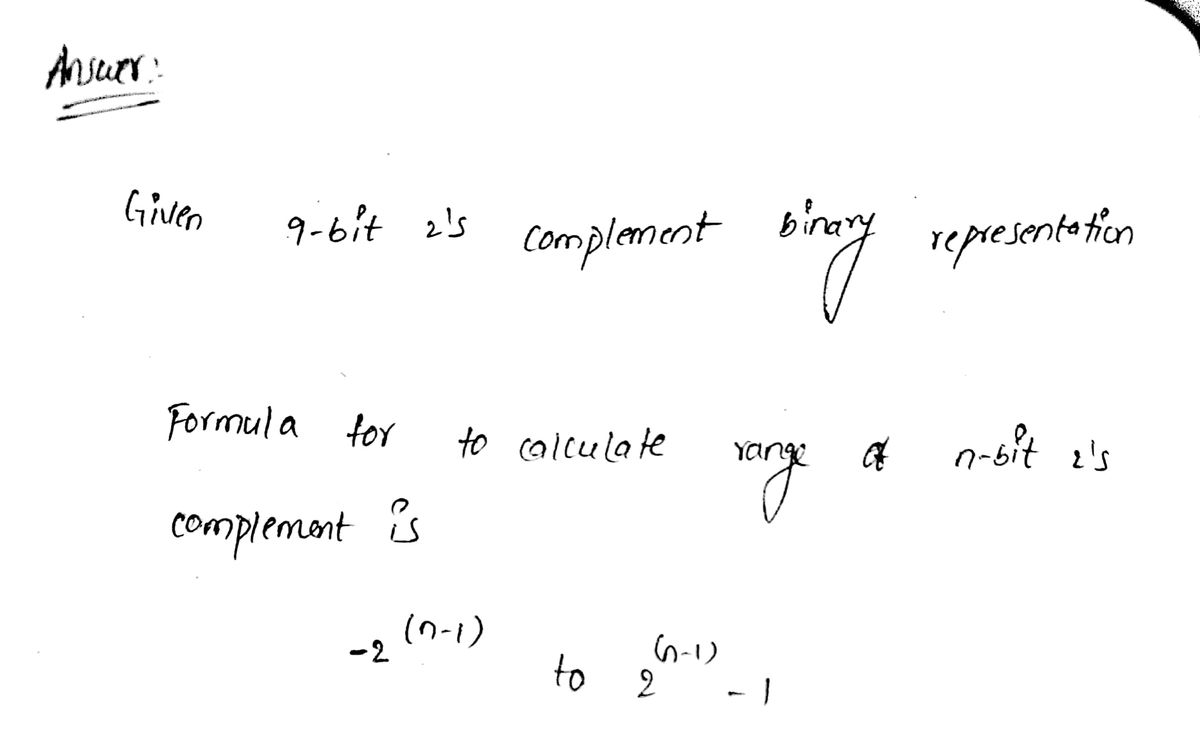 Answer:
Given 9-bit 2's complement binary representation
Formula for to calculate range of n-bit 2's
complement is
-2^(n-1) to 2^(n-1) - 1